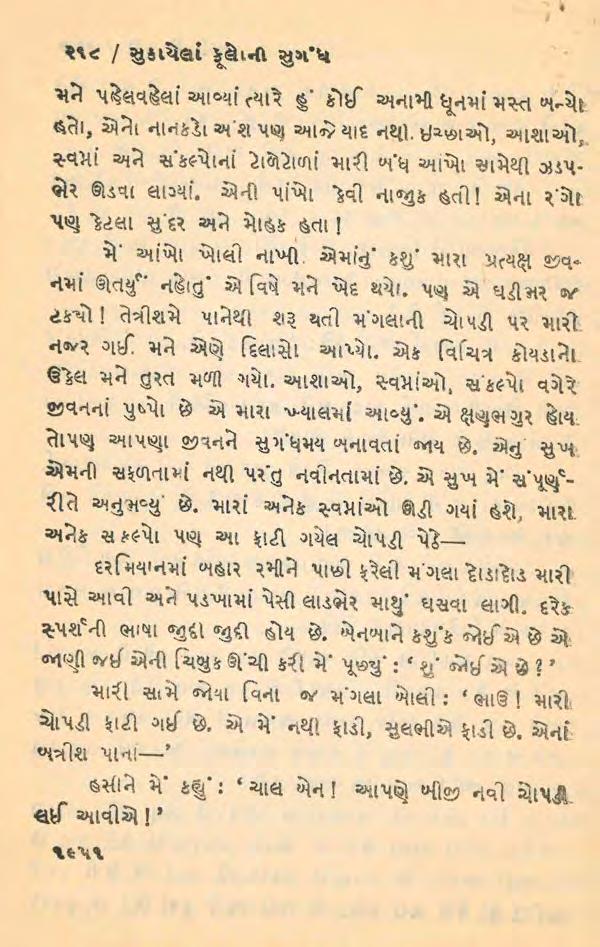 ૨૧૮ / સુકાયેલાં ફૂલોની સુગંધ
મને પહેલવહેલાં આવ્યાં ત્યારે હું કોઈ અનામી ધૂનમાં મસ્ત બન્યો
હતો, એનો નાનકડો અંશ પણ આજે યાદ નથી. ઇચ્છાઓ, આશાઓ,
સ્વપ્નાં અને સંકલ્પોનાં ટોળેટોળાં મારી બંધ આંખો સામેથી ઝડપ-
ભેર ઊડવા લાગ્યાં. એની પાંખો કેવી નાજુક હતી! એના રંગો
પણ કેટલા સુંદર અને મોહક હતા!
મેં આંખો ખોલી નાખી. એમાંનું કશું મારા પ્રત્યક્ષ જીવ-
નમાં ઊતર્યું નહોતું એ વિષે મને ખેદ થયો. પણ એ ઘડીભર જ
ટક્યો! તેત્રીશમે પાનેથી શરૂ થતી મંગલાની ચોપડી પર મારી
નજર ગઈ. મને એણે દિલાસો આપ્યો. એક વિચિત્ર કોયડાનો
ઉકેલ મને તુરત મળી ગયો. આશાઓ, સ્વપ્નાંઓ, સંકલ્પો વગેરે
જીવનનાં પુષ્પો છે એ મારા ખ્યાલમાં આવ્યું. એ ક્ષણભંગુર હોય
તોપણ આપણા જીવનને સુગંધમય બનાવતાં જાય છે. એનું સુખ
એમની સફળતામાં નથી પરંતુ નવીનતામાં છે. એ સુખ મેં સંપૂર્ણ-
રીતે અનુભવ્યું છે. મારાં અનેક સ્વપ્નાંઓ ઊડી ગયાં હશે, મારા
અનેક સંકલ્પો પણ આ ફાટી ગયેલ ચોપડી પેઠે—
દરમિયાનમાં બહાર રમીને પાછી ફરેલી મંગલા દોડાદોડ મારી
પાસે આવી અને પડખામાં પેસી લાડભેર માથું ઘસવા લાગી. દરેક
સ્પર્શની ભાષા જુદી જુદી હોય છે. બેનબાને કશુંક જોઈએ છે એ
જાણી જઈ એની ચિબુક ઊંચી કરી મેં પૂછ્યું : ‘શું જોઈએ છે?’
મારી સામે જોયા વિના જ મંગલા બોલી : ‘ભાઉ! મારી
ચોપડી ફાટી ગઈ છે. એ મેં નથી ફાડી, સુલભીએ ફાડી છે. એનાં
બત્રીશ પાનાં—’
હસીને મેં કહ્યું : ‘ચાલ બેન! આપણે બીજી નવી ચોપડી
લઈ આવીએ!’
૧૯૫૧